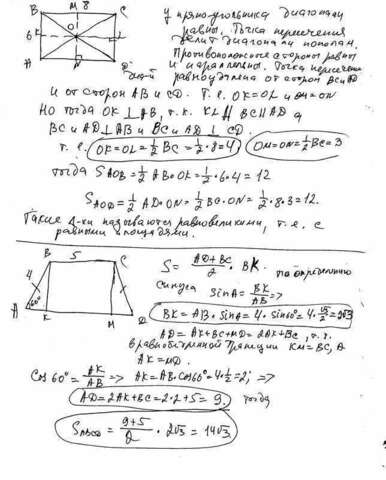 B M 8 C
6 K O L
A N D
У прямоугольника диагонали
равны. Точка пересечения
делит диагонали пополам.
Противоположные стороны равны
и параллельны. Точка пересечения
равноудалена от сторон BC и AD
и от сторон AB и CD. Т.е. OK=OL и OM=ON
Но тогда OK ⊥ AB, т.к. KL ∥ BC ∥ AD а
BC и AD ⊥ AB и BC и AD ⊥ CD.
т.е. OK=OL=½BC=½·8=4 OM=ON=½BC=3
тогда S AOB=½AB·OK=½·6·4=12
S AOD=½AD·ON=½BC·ON=½·8·3=12.
Такие Δ-ки называются равновеликими, т.е. с
равными площадями.
B 5 C
4
A 60° K M D
S=(AD+BC)/2·BK. по определению
синуса sin A=BK/AB=>
BK=AB·sin A=4·sin 60°=4·√3/2=2√3
AD=AK+BC+MD=2AK+BC, т.к.
в равнобочной трапеции KM=BC, а
AK=MD.
Cos 60°=AK/AB=>AK=AB·cos 60°=4·½=2; =>
AD=2AK+BC=2·2+5=9. тогда
S ABCD=(9+5)/2·2√3=14√3